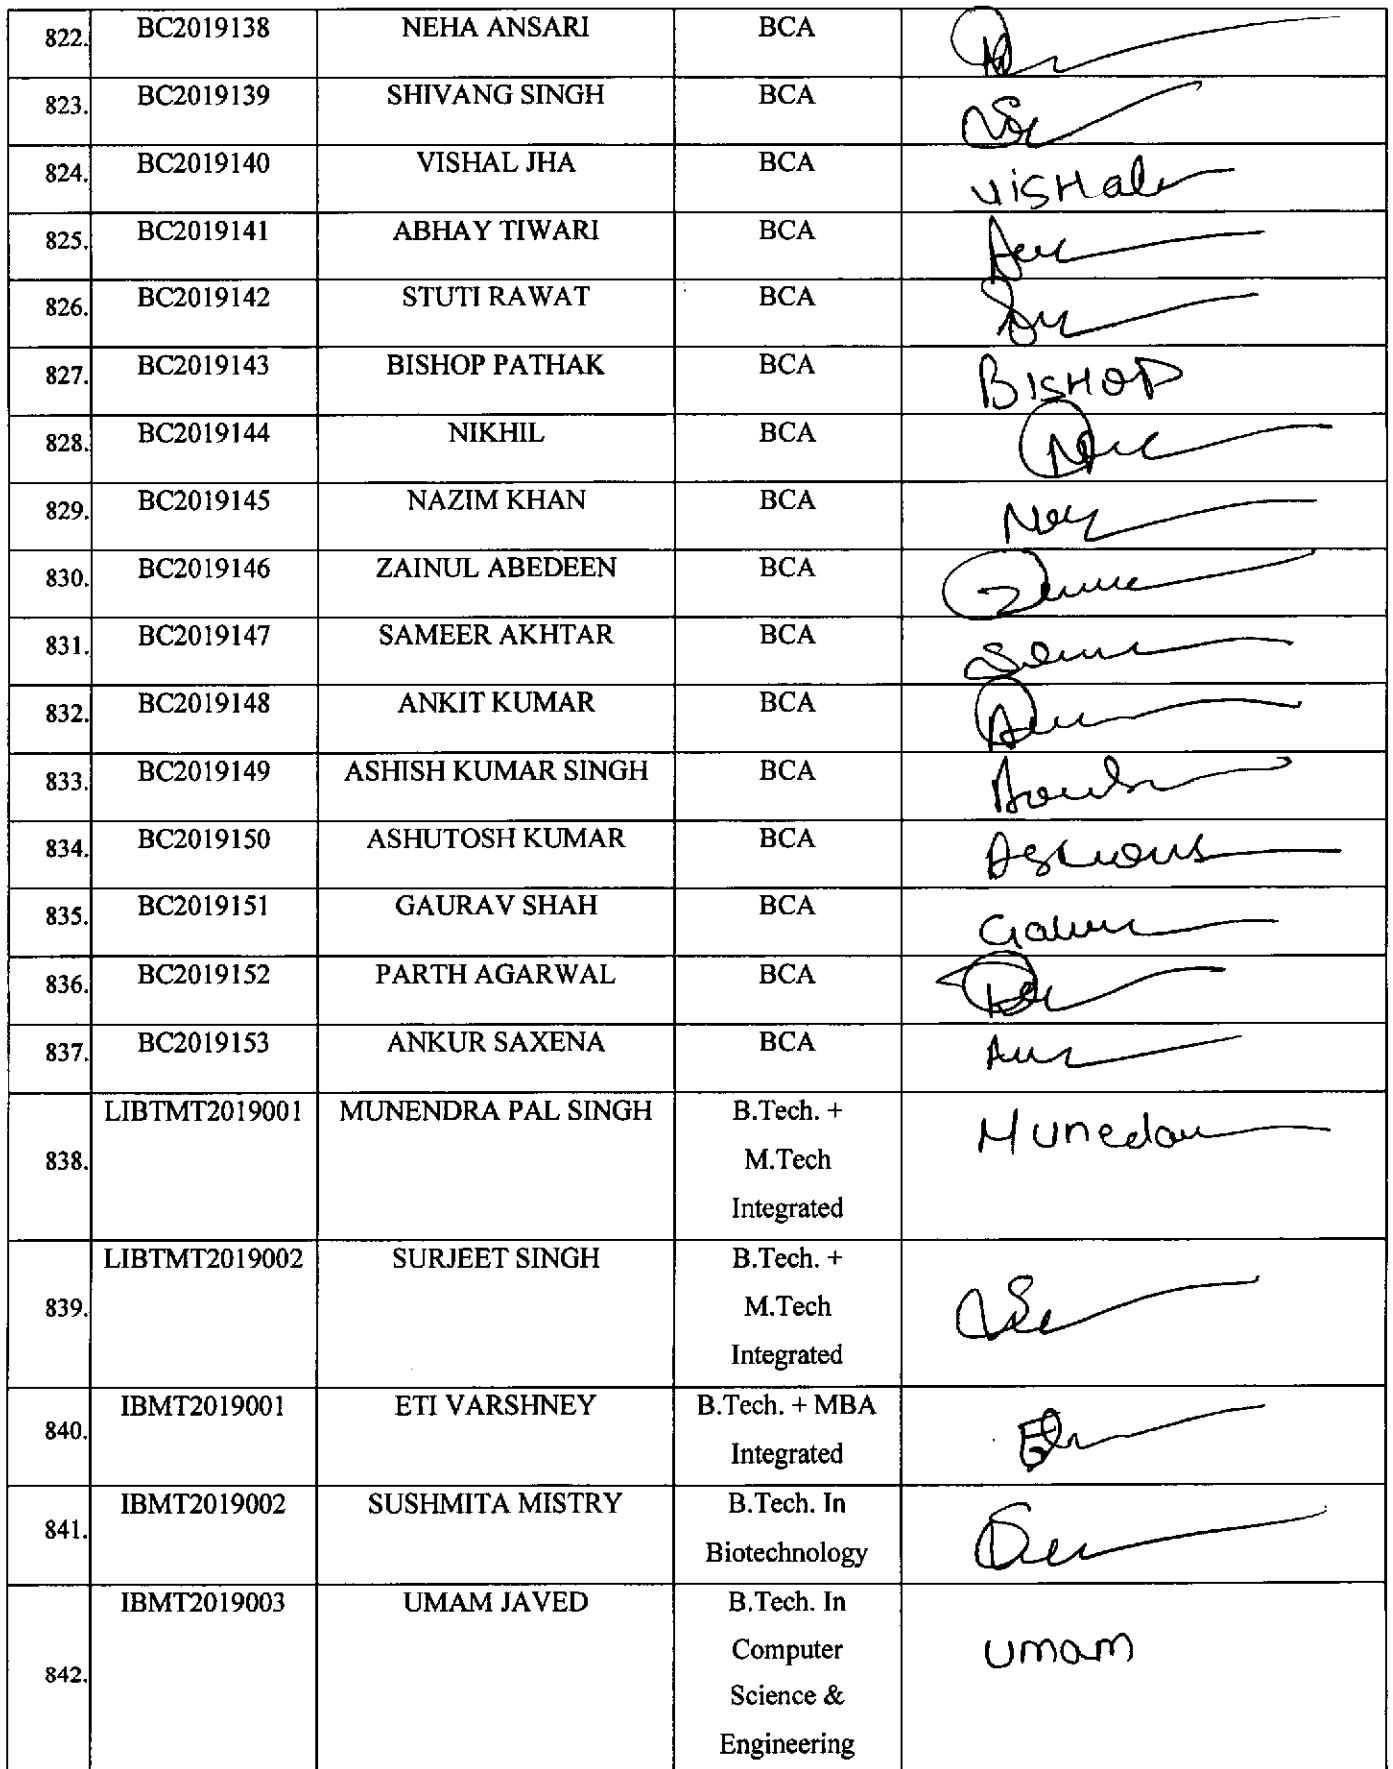 822. BC2019138 NEHA ANSARI BCA
823. BC2019139 SHIVANG SINGH BCA
824. BC2019140 VISHAL JHA BCA VISHal
825. BC2019141 ABHAY TIWARI BCA
826. BC2019142 STUTI RAWAT BCA
827. BC2019143 BISHOP PATHAK BCA BISHOP
828. BC2019144 NIKHIL BCA
829. BC2019145 NAZIM KHAN BCA
830. BC2019146 ZAINUL ABEDEEN BCA
831. BC2019147 SAMEER AKHTAR BCA
832. BC2019148 ANKIT KUMAR BCA
833. BC2019149 ASHISH KUMAR SINGH BCA
834. BC2019150 ASHUTOSH KUMAR BCA
835. BC2019151 GAURAV SHAH BCA
836. BC2019152 PARTH AGARWAL BCA
837. BC2019153 ANKUR SAXENA BCA
LIBTMT2019001 MUNENDRA PAL SINGH B.Tech. +
838. M.Tech
Integrated
LIBTMT2019002 SURJEET SINGH B.Tech. +
839. M.Tech
Integrated
IBMT2019001 ETI VARSHNEY B.Tech. + MBA
840. Integrated
IBMT2019002 SUSHMITA MISTRY B.Tech. In
841. Biotechnology
IBMT2019003 UMAM JAVED B.Tech. In
Computer umam
842. Science &
Engineering